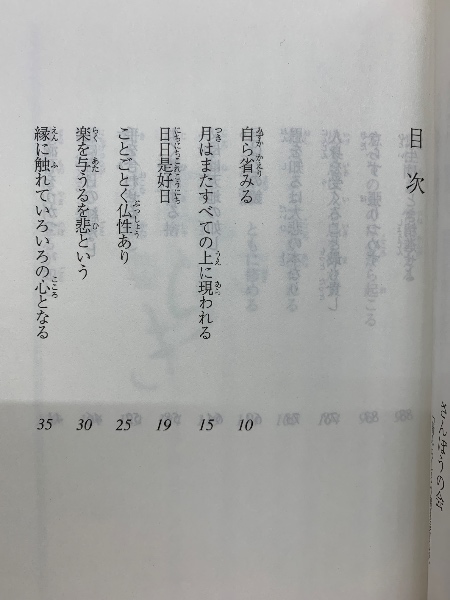 目次
自ら省みる 10
月はまたすべての上に現われる 15
日日是好日 19
ことごとく仏性あり 25
楽を与うるを悲という 30
縁に触れていろいろの心となる 35